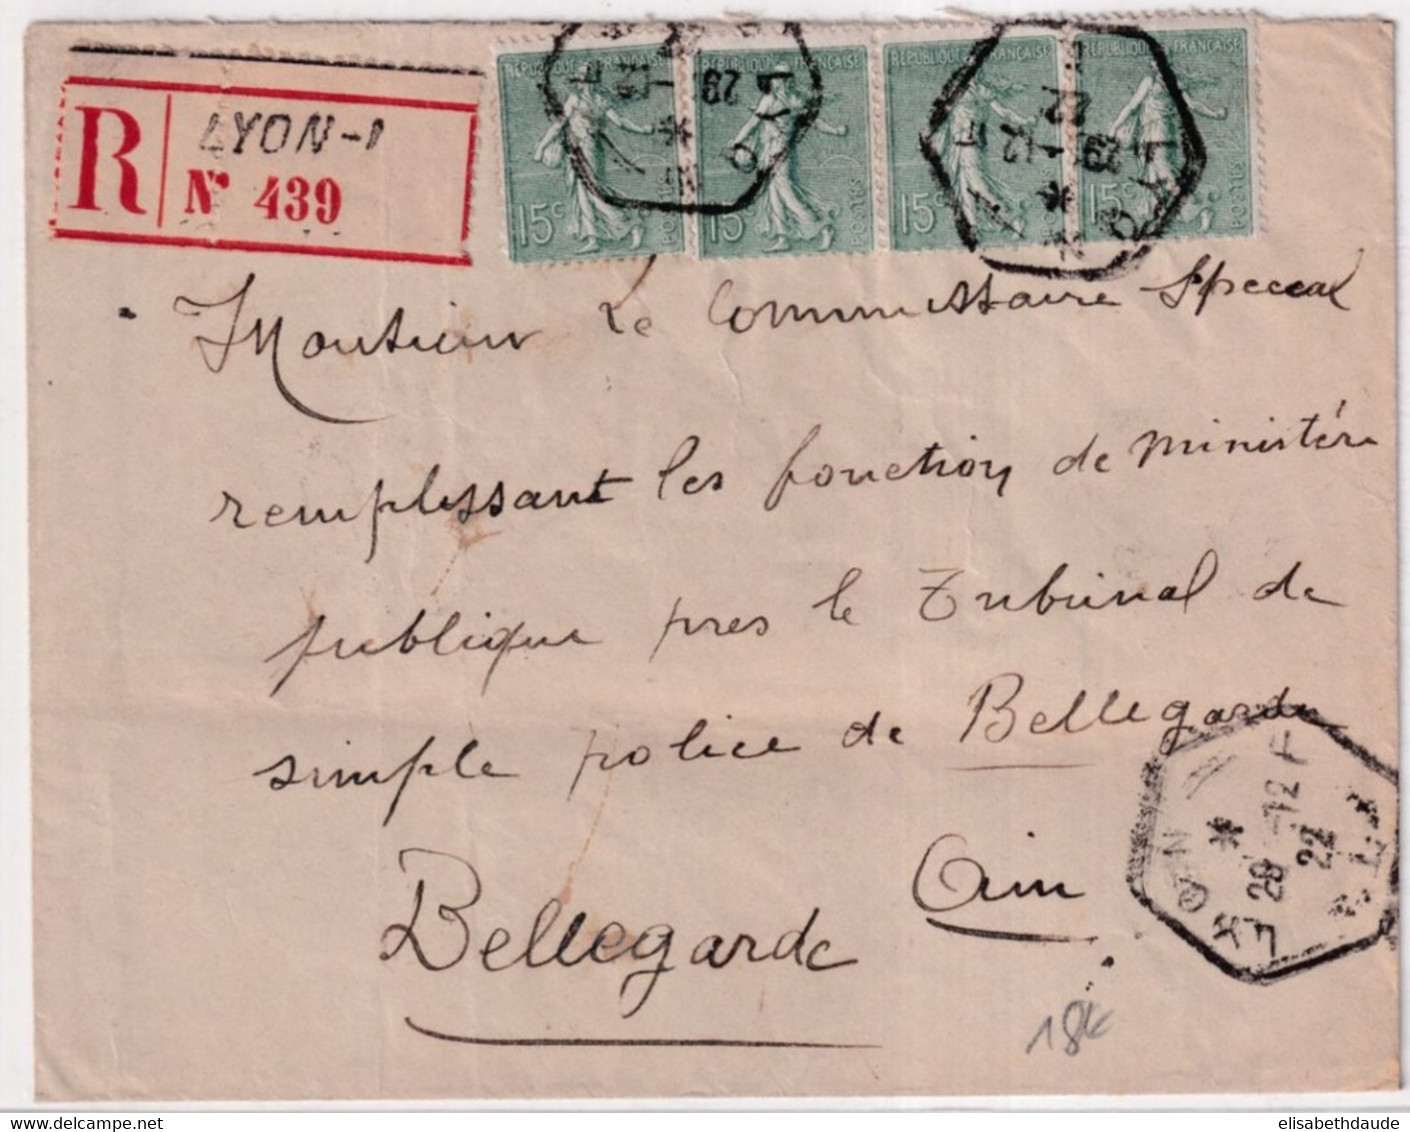 R LYON-1
N° 439
REPUBLIQUE FRANÇAISE REPUBLIQUE FRANÇAISE REPUBLIQUE FRANÇAISE REPUBLIQUE FRANÇAISE
15c POSTES 15c POSTES 15c POSTES 15c POSTES
29 -12
22
29 -12
Monsieur Le Commissaire Special
remplissant les fonction de ministère
publique pres le Tribunal de
simple police de Bellegarde
Ain
Bellegarde
LYON
28 -12
22
18€
elisabethdaude